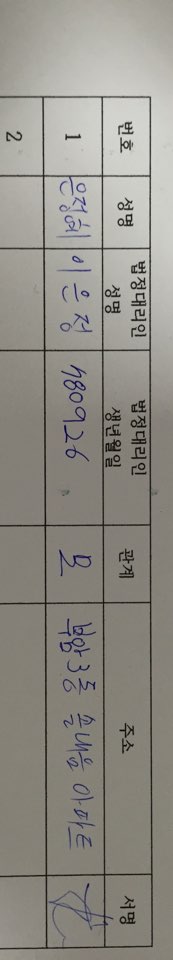 번호 성명 법정대리인 성명 법정대리인 생년월일 관계 주소 서명
1 은정혜 이은정 780926 모 부암3동 솔내음 아파트
2